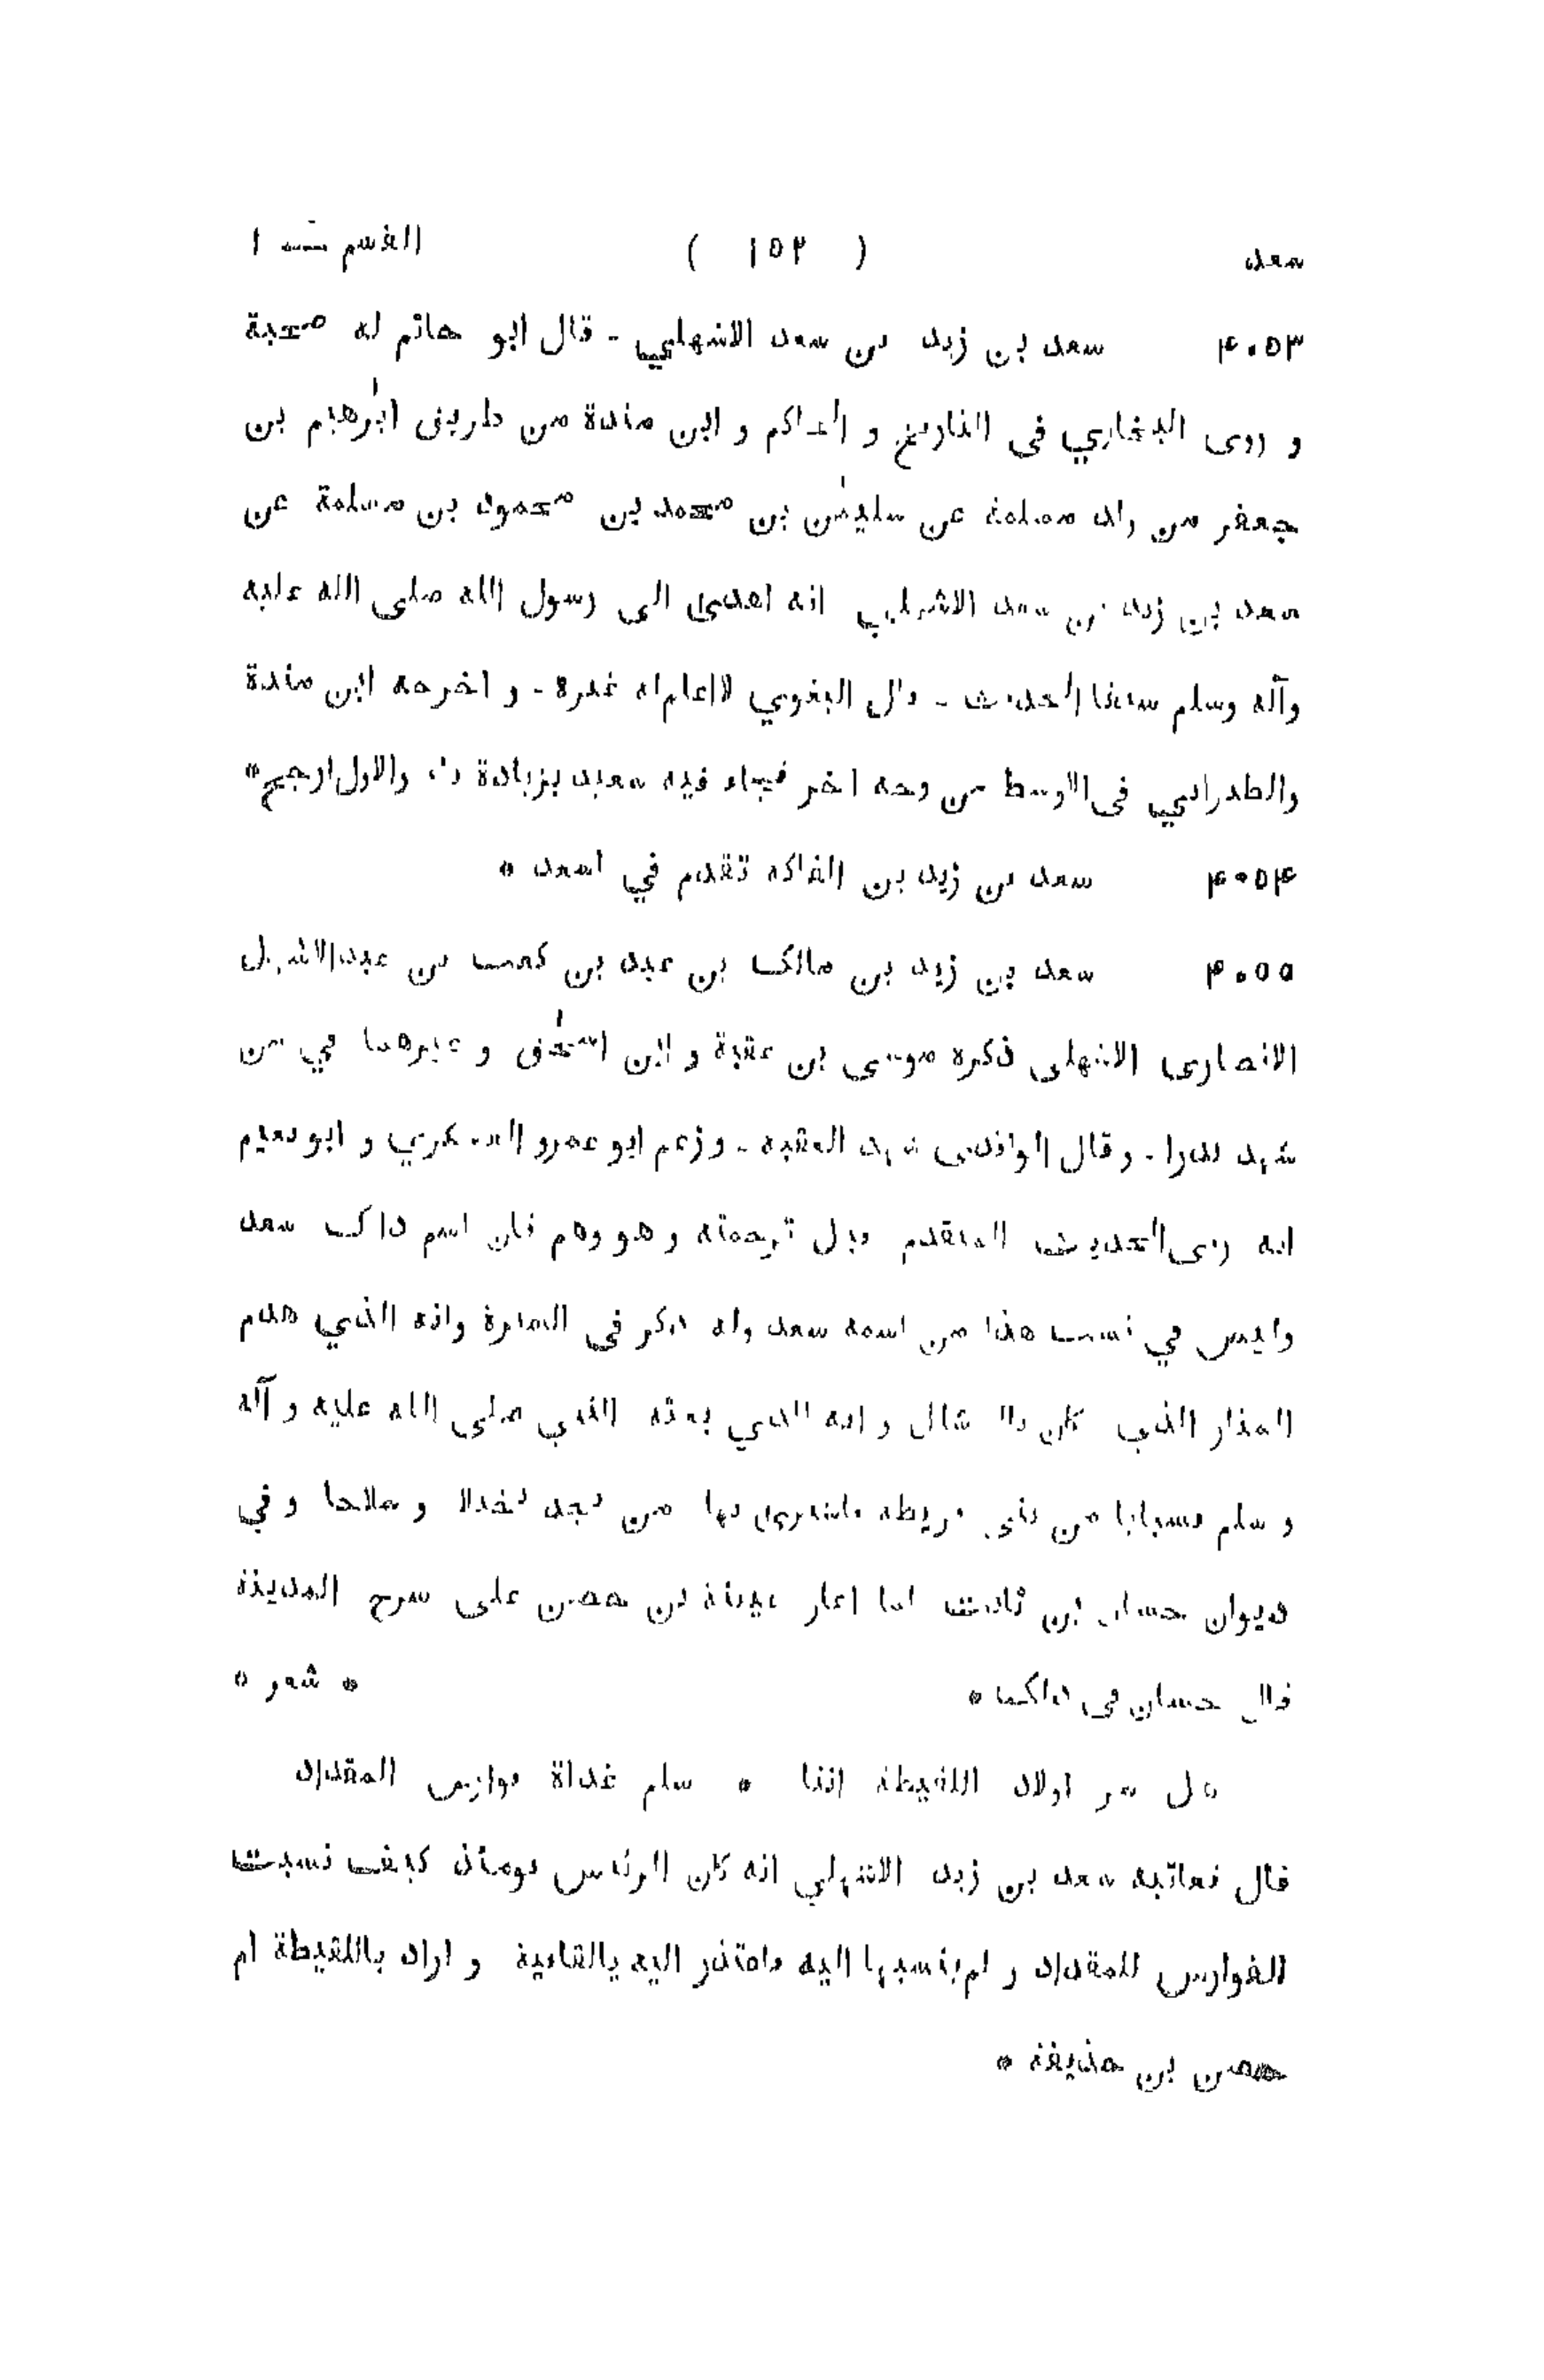 سعد ( ١٥٢ ) القسم ١
٤٠٥٣ سعد بن زيد بن سعد الاشهلي - قال ابو حاتم له صحبة
و روى البخاري فى التاريخ و الحاكم و ابن مندة من طريق ابرٰهيم بن
جعفر من ولد مسلمة عن سليمٰن بن محمد بن محمود بن مسلمة عن
سعد بن زيد بن سعد الاشهلي انه اهدى الى رسول الله صلى الله عليه
وآله وسلم سيفا الحديث - قال البغوي لا اعلم له غيره - و اخرجه ابن مندة
والطبراني فى الاوسط من وجه اخر فجاء فيه سعيد بزيادة ياء والاول ارجح *
٤٠٥٤ سعد بن زيد بن الفاكه تقدم في اسعد *
٤٠٥٥ سعد بن زيد بن مالك بن عبد بن كعب بن عبد الاشهل
الانصارى الاشهلى ذكره موسى بن عقبة و ابن اسحٰق و غيرهما في من
شهد بدرا - و قال الواقدى شهد العقبة - و زعم ابو عمرو العسكري و ابو نعيم
انه روى الحديث المتقدم قبل ترجمته و هو وهم فان اسم ذاك سعد
وليس في نسب هذا من اسمه سعد وله ذكر فى السيرة وانه الذي هدم
المنار الذي كان بالمشلل و انه الذي بعثه النبي صلى الله عليه و آله
و سلم بسبايا من بنى قريظه فاشترى بها من نجد نخلا و سلاحا و في
ديوان حسان ابن ثابت لما اغار عيينة بن حصن على سرح المدينة
قال حسان فى ذلك * * شعر *
هل سر اولاد اللقيطة اننا * سلم غداة فوارس المقداد
قال فعاتبه سعد بن زيد الاشهلي انه كان الرئيس يومئذ كيف نسبت
الفوارس للمقداد و لم ينسبها اليه فاعتذر اليه بالقافية و اراد باللقيطة ام
حصن بن حذيفة *